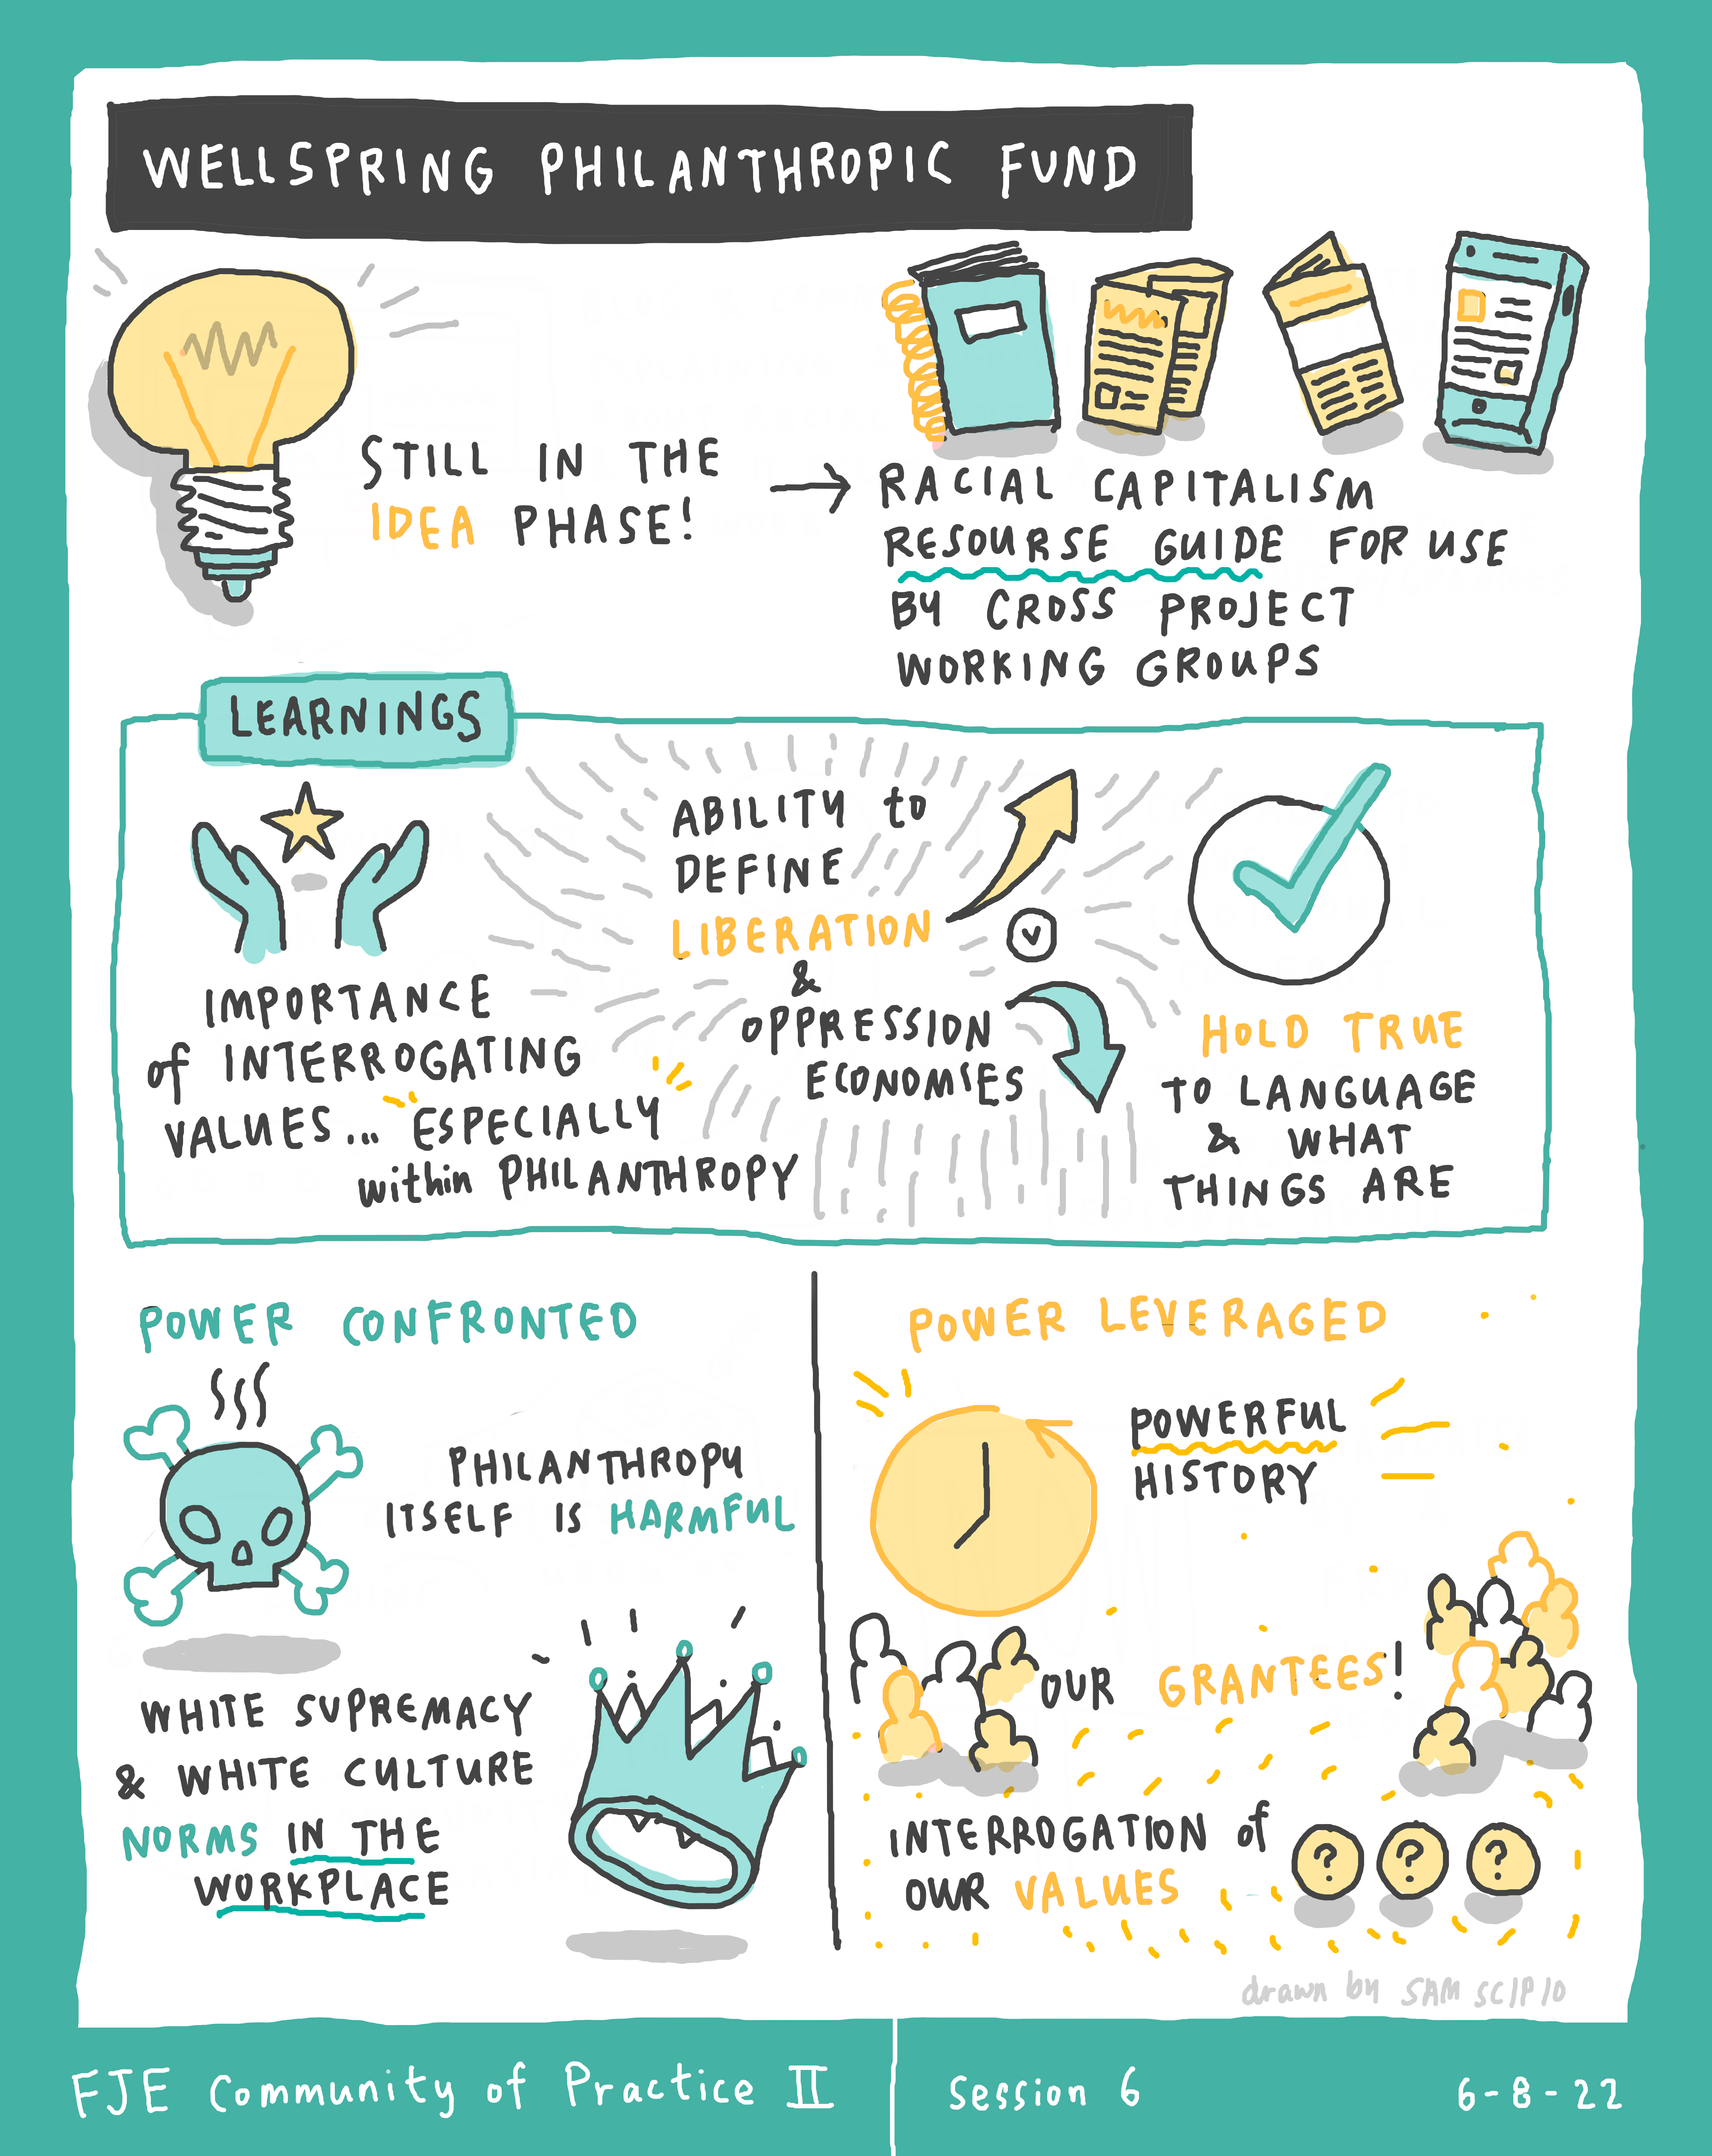 WELLSPRING PHILANTHROPIC FUND
STILL IN THE
IDEA PHASE!
→ RACIAL CAPITALISM
RESOURSE GUIDE FOR USE
BY CROSS PROJECT
WORKING GROUPS
LEARNINGS
IMPORTANCE
of INTERROGATING
VALUES... ESPECIALLY
within PHILANTHROPY
ABILITY to
DEFINE
LIBERATION
&
OPPRESSION
ECONOMIES
HOLD TRUE
TO LANGUAGE
& WHAT
THINGS ARE
POWER CONFRONTED
PHILANTHROPY
ITSELF IS HARMFUL
WHITE SUPREMACY
& WHITE CULTURE
NORMS IN THE
WORKPLACE
POWER LEVERAGED
POWERFUL
HISTORY
OUR GRANTEES!
INTERROGATION of
OUR VALUES
? ? ?
drawn by SAM SCIPIO
FJE Community of Practice II
Session 6
6-8-22